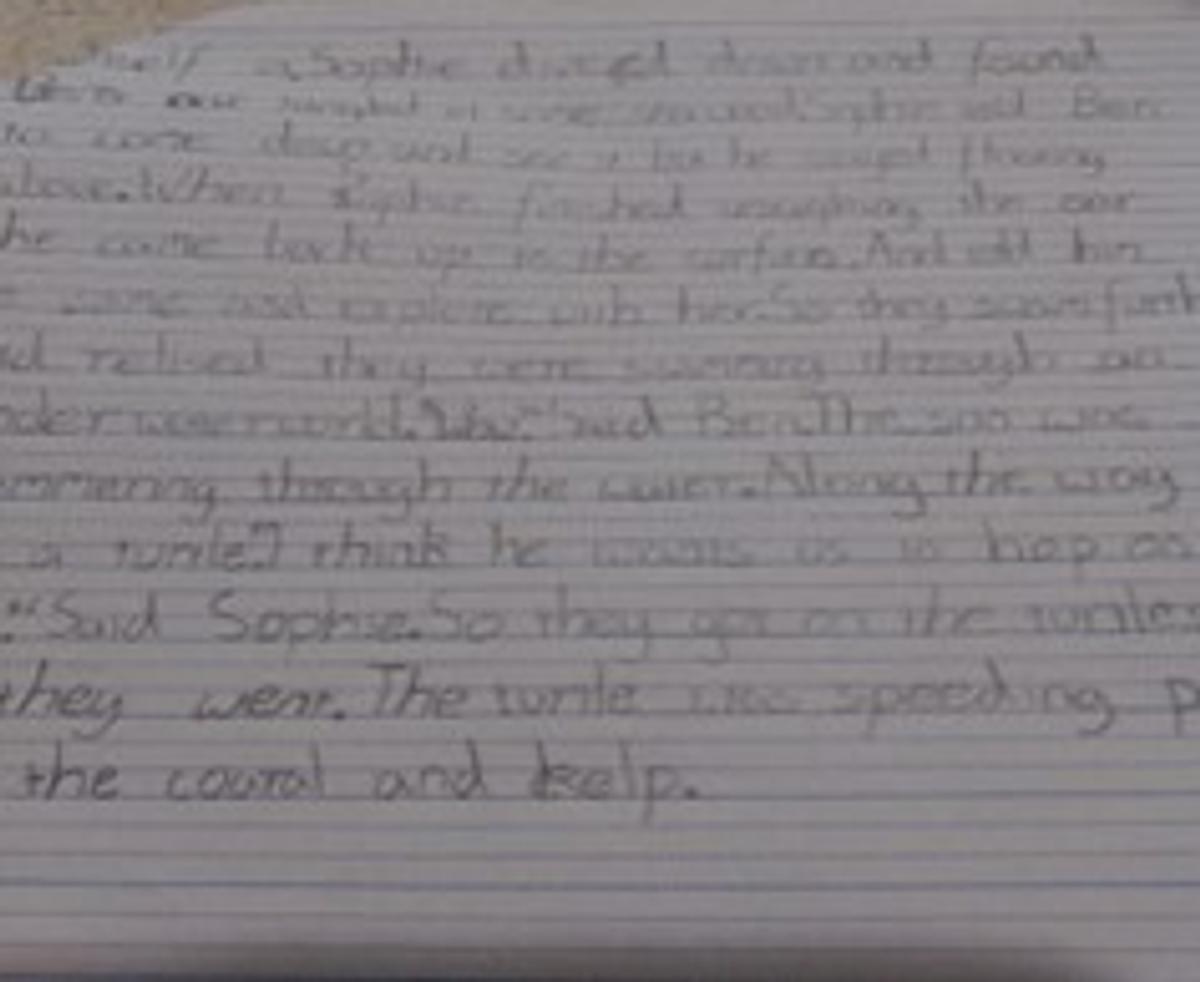 Sophie dived down and found
in some seaweed. Sophie told Ben
to come down and see it but he stayed floating
above. When Sophie finished the
he came back up to the surface. And told him
come and explore with her. So they swam
relised they were swimming through an
world. "Wow" Said Ben. The sun was
mmering through the water. Along the way
a turtle." I think he wants us to hop on
." Said Sophie. So they got on the turtles
they went. The turtle was speeding p
the coural and kelp.